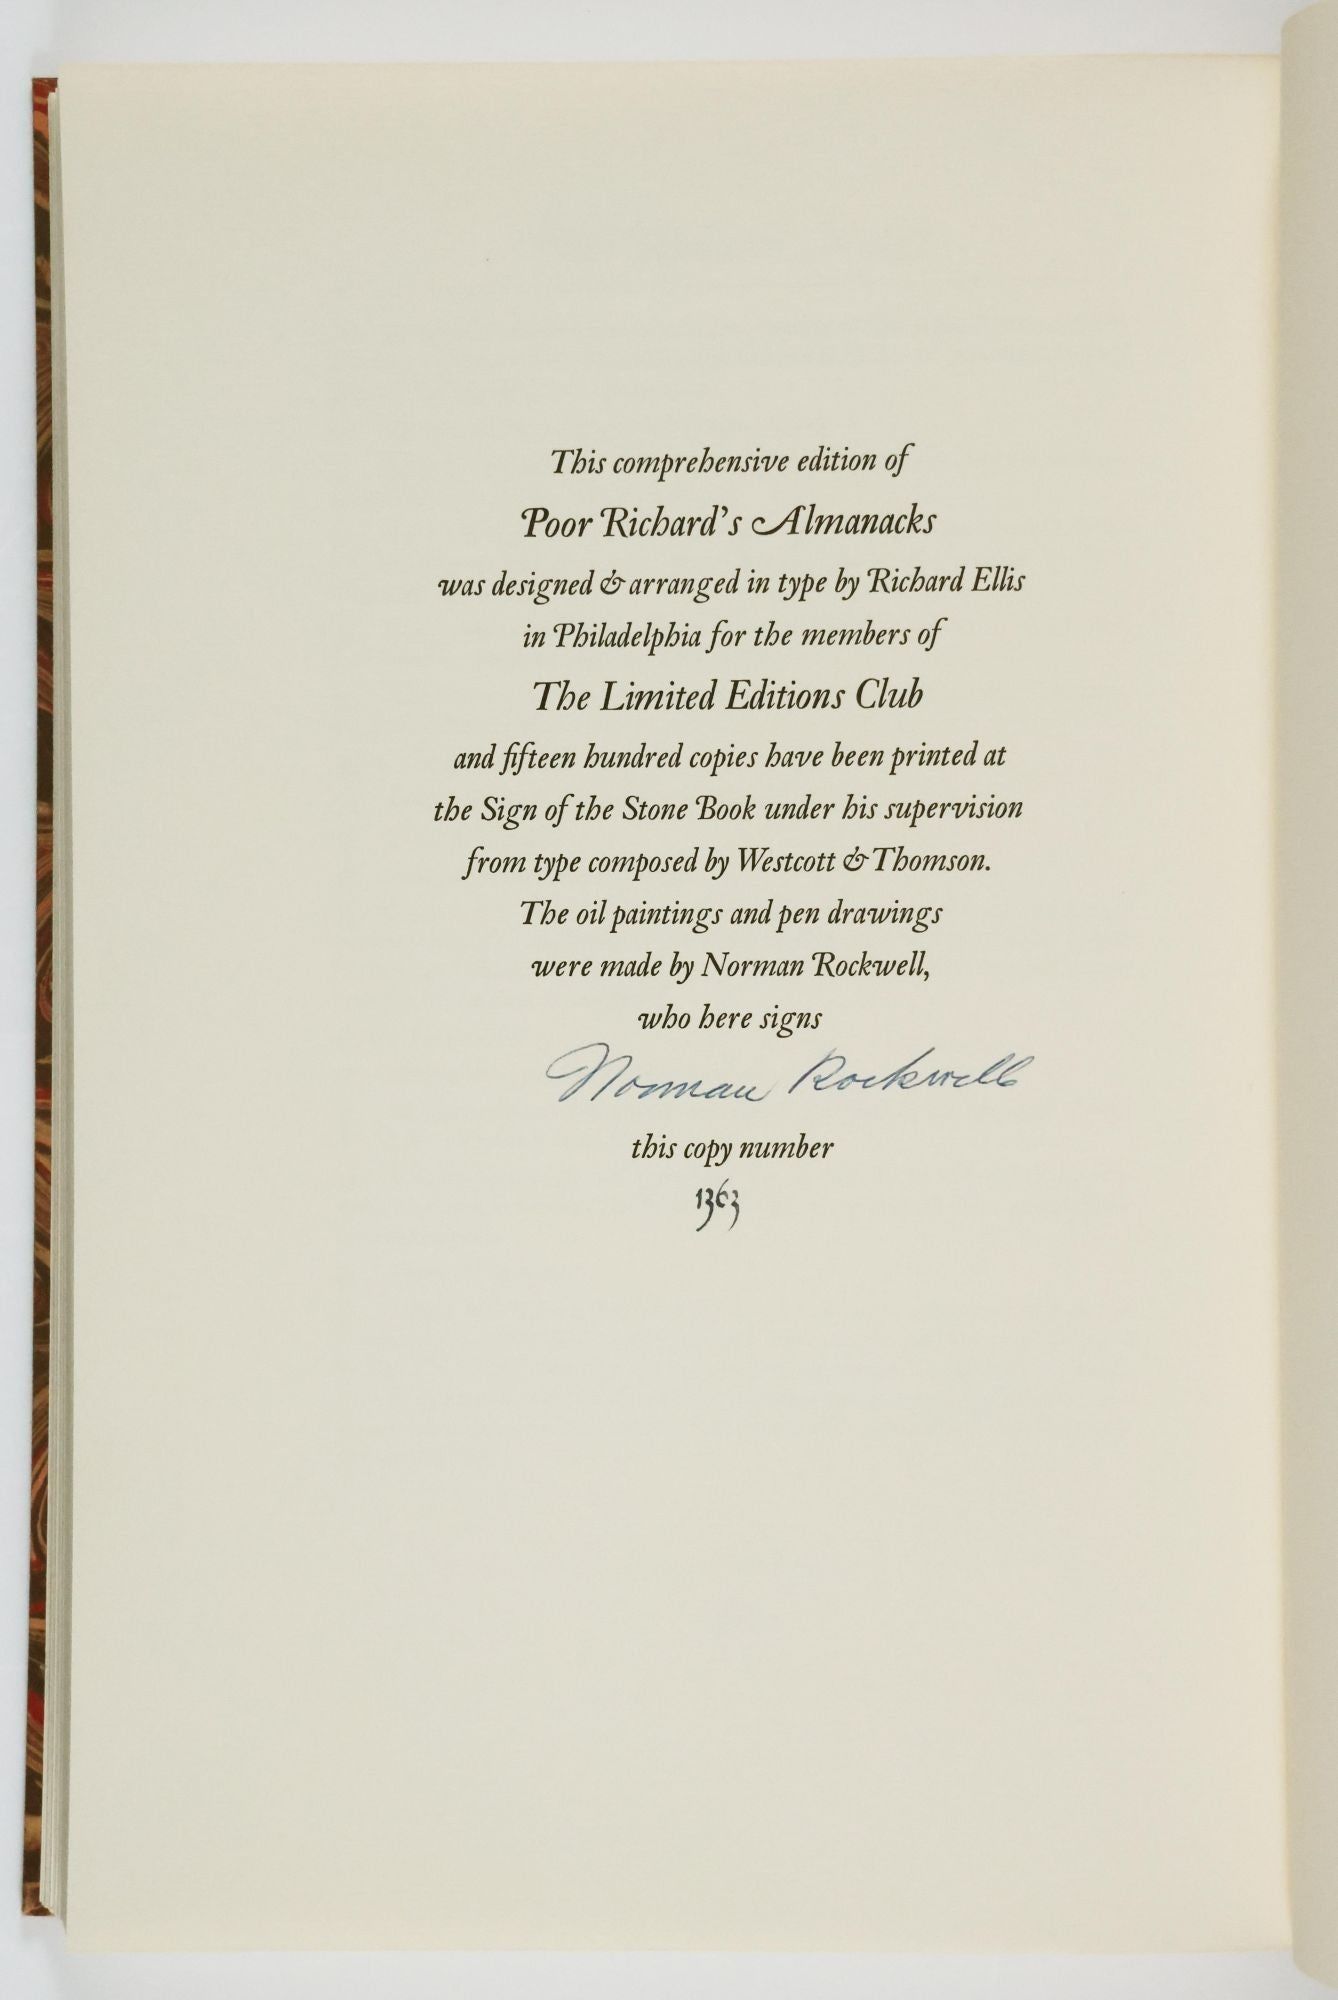 This comprehensive edition of
Poor Richard's Almanacks
was designed & arranged in type by Richard Ellis
in Philadelphia for the members of
The Limited Editions Club
and fifteen hundred copies have been printed at
the Sign of the Stone Book under his supervision
from type composed by Westcott & Thomson.
The oil paintings and pen drawings
were made by Norman Rockwell,
who here signs
Norman Rockwell
this copy number
1363